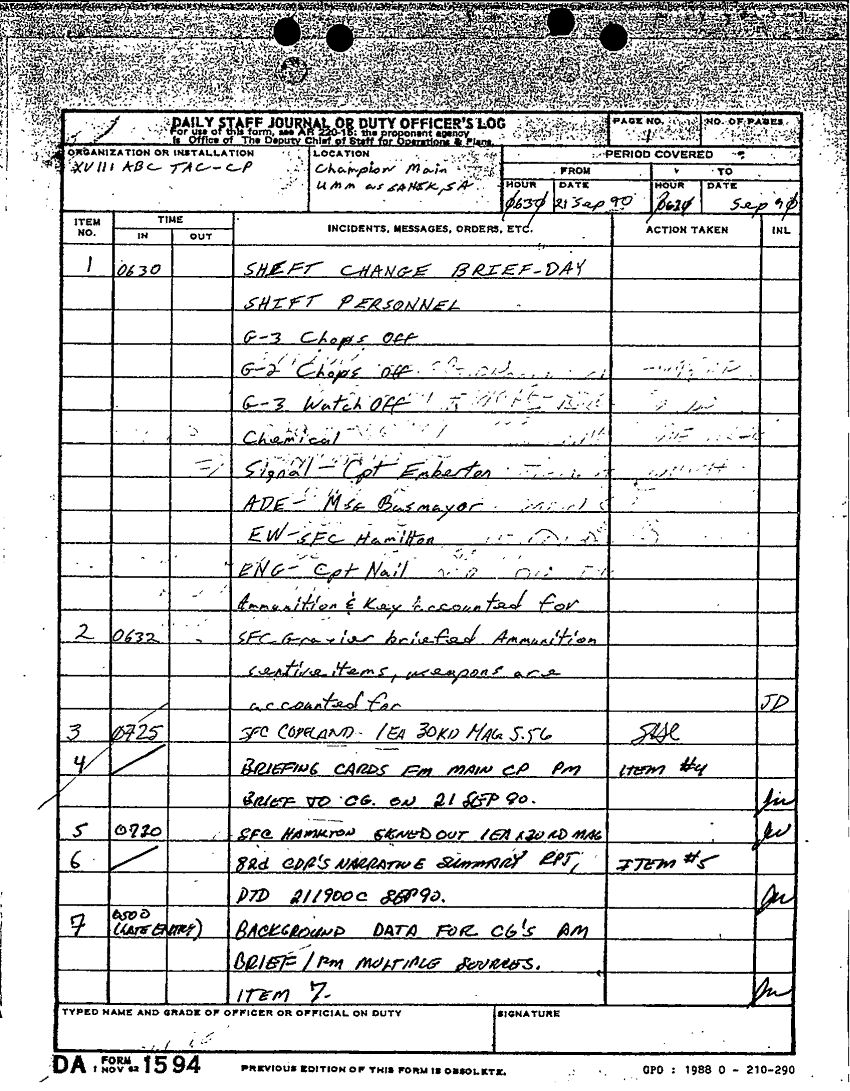 DAILY STAFF JOURNAL OR DUTY OFFICER'S LOG
For use of this form, see AR 220-15; the proponent agency
is Office of The Deputy Chief of Staff for Operations & Plans.
PAGE NO. 1
NO. OF PAGES
ORGANIZATION OR INSTALLATION
XVIII ABC TAC-CP
LOCATION
Champion Main
SA
PERIOD COVERED
FROM TO
HOUR DATE HOUR DATE
0630 21 Sep 90 Sep 90
ITEM NO. TIME IN OUT INCIDENTS, MESSAGES, ORDERS, ETC. ACTION TAKEN INL
1 0630 SHIFT CHANGE BRIEF-DAY
SHIFT PERSONNEL
G-3 Chops Off
G-2 Chops Off
G-3 Watch Off
Chemical
Signal - Cpt Emberton
ADE - MSG Busmayor
EW-SFC Hamilton
ENG- Cpt Nail
Ammunition & Key Accounted for
2 0632 SFC briefed Ammunition
items, weapons are
accounted for JD
3 0725 SFC COPELAND- 1EA 30RD MAG 5.56
4 BRIEFING CARDS FM MAIN CP PM ITEM #4
BRIEF TO CG. ON 21 SEP 90.
5 0720 SFC HAMILTON SIGNED OUT 1EA RD MAG
6 CDR'S NARRATIVE SUMMARY RPT, ITEM #5
DTD 211900C SEP90.
7 0500 (LATE ENTRY) BACKGROUND DATA FOR CG'S AM
BRIEF / FM MULTIPLE SOURCES.
ITEM 7.
TYPED NAME AND GRADE OF OFFICER OR OFFICIAL ON DUTY
SIGNATURE
DA FORM 1 NOV 62 1594
PREVIOUS EDITION OF THIS FORM IS OBSOLETE.
GPO : 1988 O - 210-290